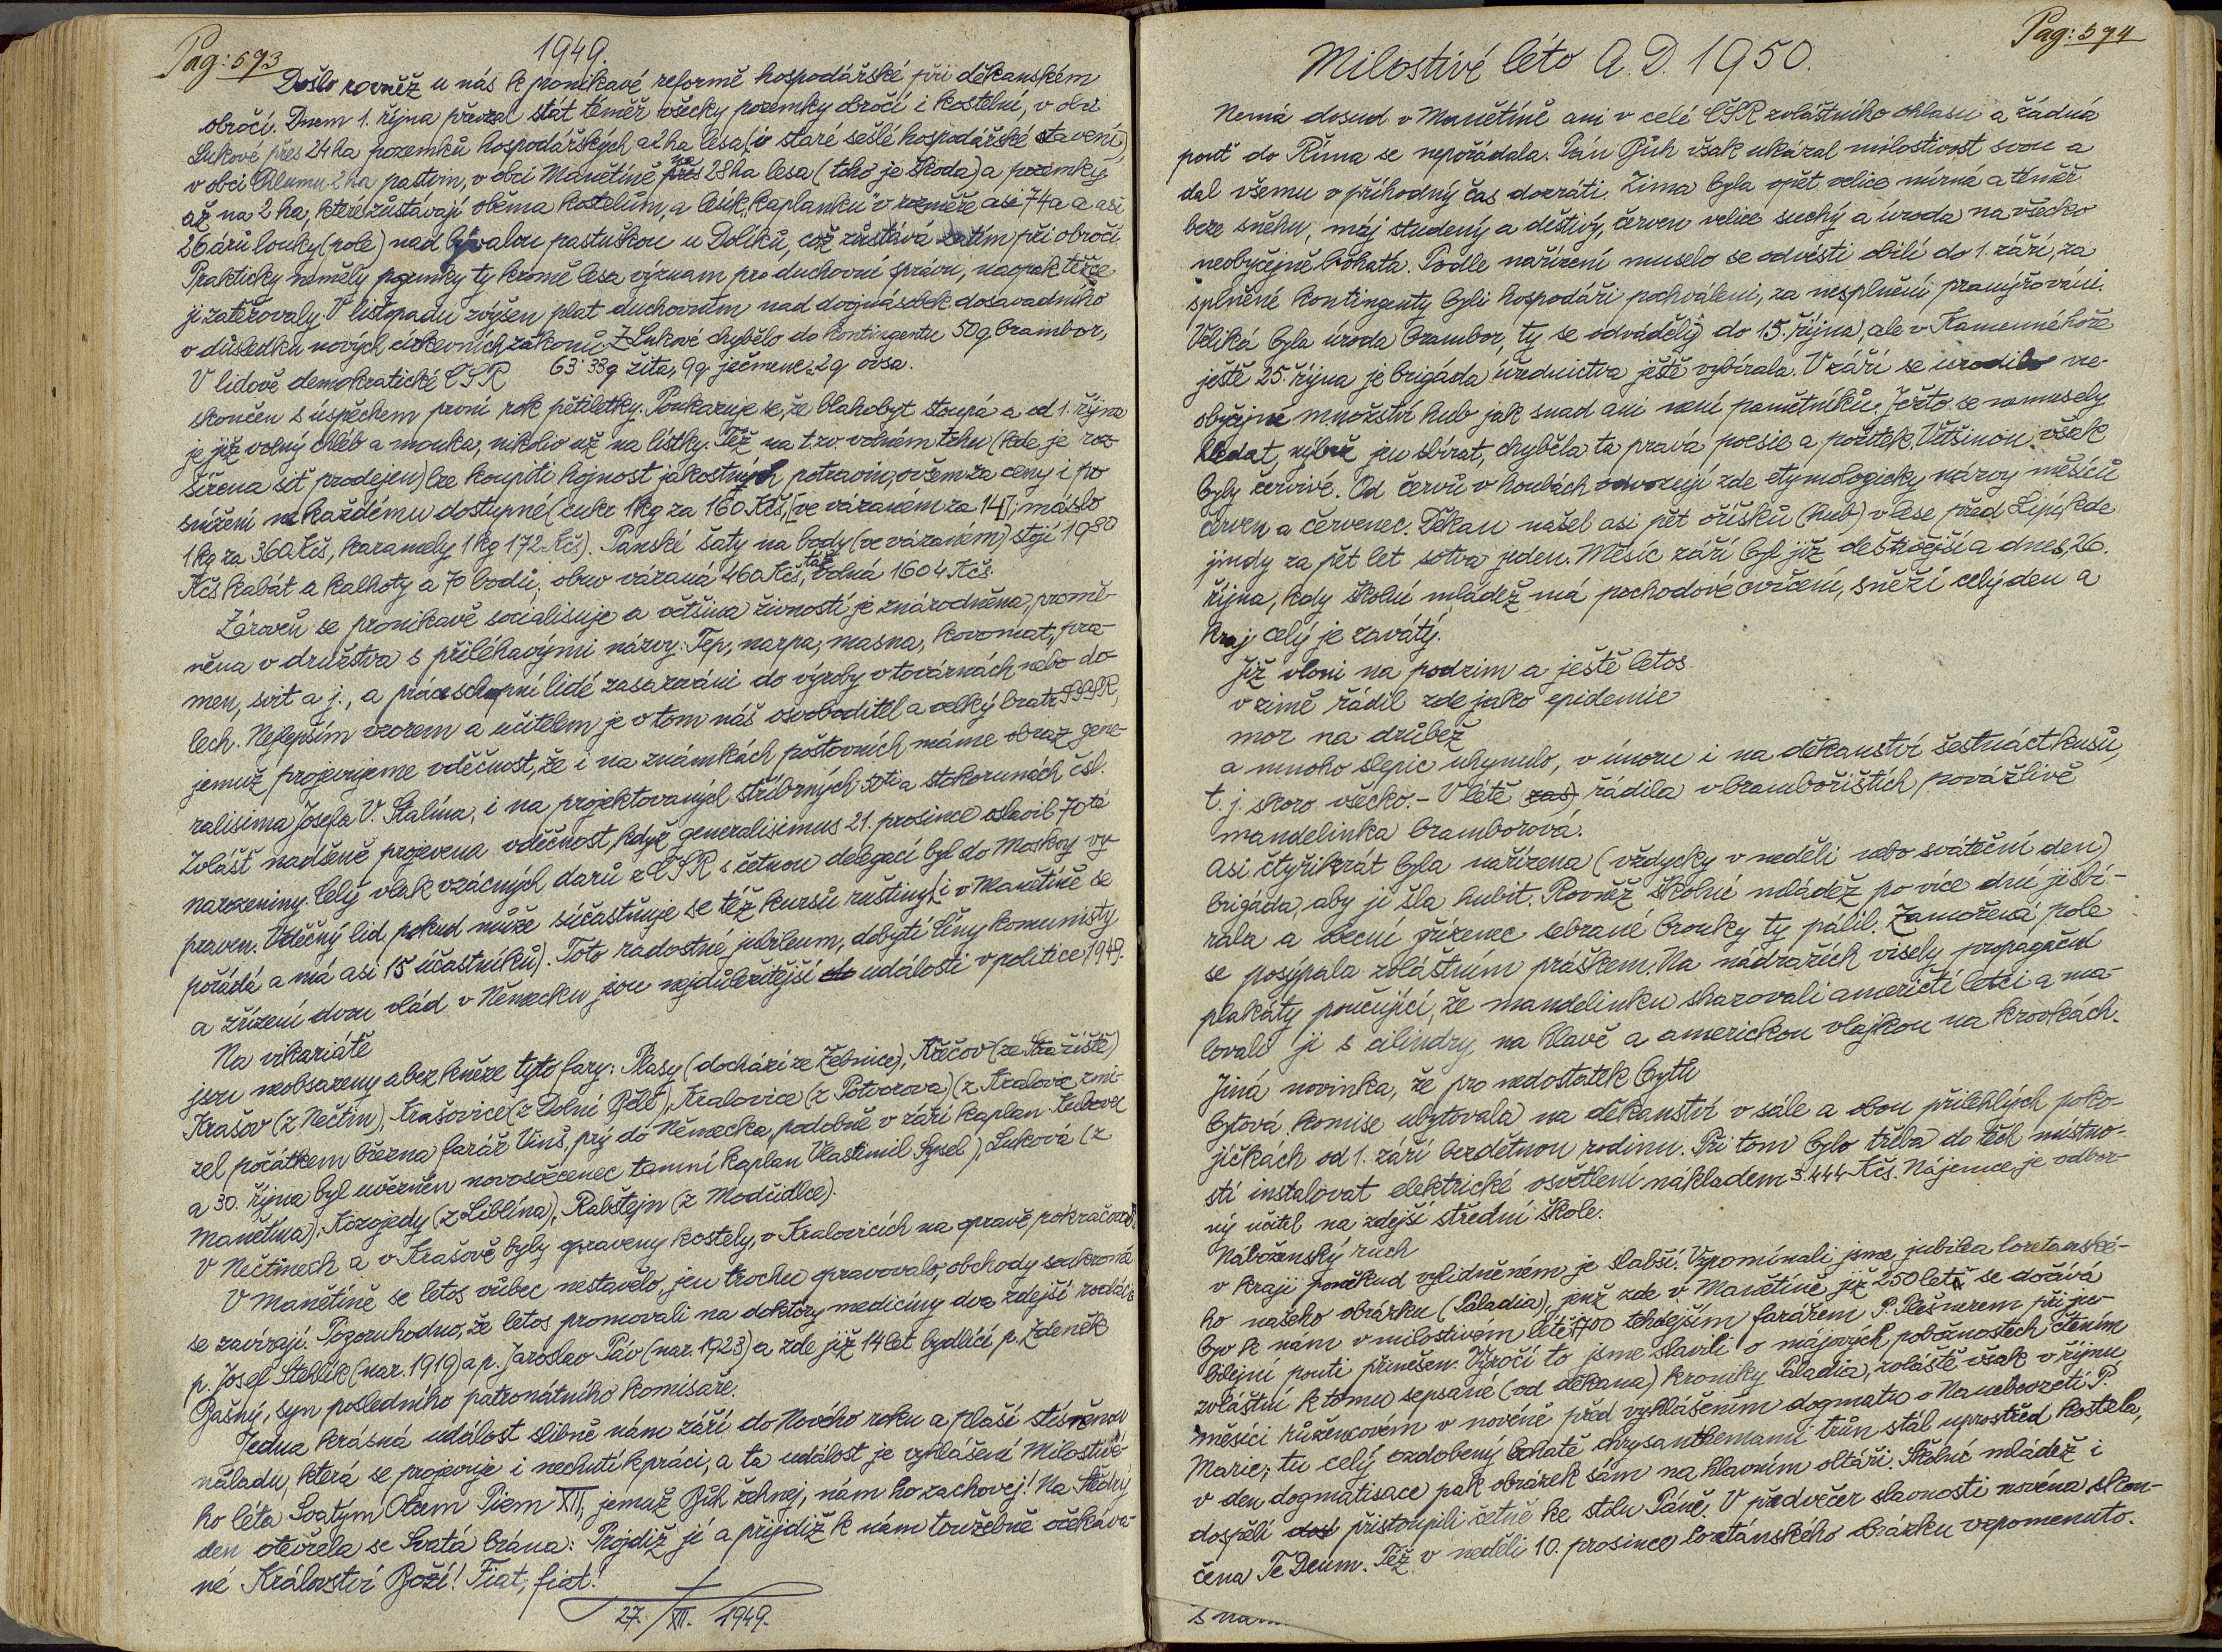 Pag: 573
1949.
Došlo rovněž u nás k pronikavé reformě hospodářské při děkanském
obročí. Dnem 1. října převzal stát téměř všecky pozemky obročí i kostelní, v obci
Lukové přes 24 ha pozemků hospodářských a 2 ha lesa (i staré sešlé hospodářské stavení),
v obci Chlumu 2 ha pastvin, v obci Manětíně přes 28 ha lesa (toho je škoda) a pozemky
až na 2 ha, které zůstávají oběma kostelům, a lesík „Kaplanku" v rozměře asi 74 a a asi
26 árů louky (pole) nad bývalou pastuškou u Dolíků, což zůstává zatím při obročí.
Prakticky neměly pozemky ty kromě lesa význam pro duchovní správu, naopak těžce
ji zatěžovaly. V listopadu zvýšen plat duchovním nad dvojnásobek dosavadního
v důsledku nových církevních zákonů. Z Lukové chybělo do kontingentu 50 q brambor,
63·33 q žita, 9 q ječmene, 2 q ovsa.
V lidově demokratické ČSR
skončen s úspěchem první rok pětiletky. Poukazuje se, že blahobyt stoupá a od 1. října
je již volný chléb a mouka, nikoliv už na lístky. Též na t.zv. volném trhu (kde je roz-
šířena síť prodejen) lze koupiti hojnost jakostných potravin, ovšem za ceny i po
snížení ne každému dostupné (cukr 1 kg za 160 Kčs, [ve vázaném za 14]; máslo
1 kg za 360 Kčs, karamely 1 kg 172 Kčs). Panské šaty na body (ve vázaném) stojí 1980
Kčs kabát a kalhoty a 70 bodů, obuv vázaná 460 Kčs, táž volná 1604 Kčs.
Zároveň se pronikavě socialisuje a většina živností je znárodněna, promě-
něna v družstva s přiléhavými názvy: Tep, narpa, masna, kovomat, pra-
men, svit a j., a práceschopní lidé zasazováni do výroby v továrnách nebo do-
lech. Nejlepším vzorem a učitelem je v tom náš osvoboditel a velký bratr SSSR,
jemuž projevujeme vděčnost, že i na známkách poštovních máme obraz gene-
ralisima Josefa V. Stalina, i na projektovaných stříbrných 50ti a stokorunách čsl.
Zvlášť nadšeně projevena vděčnost, když generalisimus 21. prosince oslavil 70té
narozeniny. Celý vlak vzácných darů z ČSR s četnou delegací byl do Moskvy vy-
praven. Vděčný lid, pokud může súčastňuje se též kursů ruštiny (i v Manětíně se
pořádá a má asi 15 účastníků). Toto radostné jubileum, dobytí Číny komunisty
a zřízení dvou vlád v Německu jsou nejdůležitější události v politice 1949.
Na vikariátě
jsou neobsazeny a bez kněze tyto fary: Plasy (dochází ze Žebnice), Křečov (ze Stražiště)
Krašov (z Nečtin), Krašovice (z Dolní Bělé), Kralovice (z Potvorova) (z Kralovic zmi-
zel počátkem března farář Vinš, prý do Německa, podobně v září kaplan
a 30. října byl uvězněn novosvěcenec tamní kaplan Vlastimil Sysel), Luková (z
Manětína), Kozojedy (z Liblína), Rabštejn (z Modčidlce).
V Nečtinech a v Krašově byly opraveny kostely, v Kralovicích na opravě pokračováno
V Manětíně se letos vůbec nestavělo, jen trochu opravovalo, obchody soukromé
se zavírají. Pozoruhodno, že letos promovali na doktory medicíny dva zdejší rodáci
p. Josef Stehlík (nar. 1919) a p. Jaroslav Páv (nar. 1923) a zde již 14 let bydlící p. Zdeněk
Bašný, syn posledního patronátního komisaře.
Jedna krásná událost slibně nám září do Nového roku a plaší stísněnou
náladu, která se projevuje i nechutí k práci, a ta událost je vyhlášení Milostivé-
ho léta Svatým Otcem Piem XII, jemuž Bůh žehnej, nám ho zachovej! Na Štědrý
den otevřela se Svatá brána: Projdiž jí a přijdiž k nám toužebně očekáva-
né Království Boží! Fiat, fiat!
27./XII. 1949.
Pag: 574
Milostivé léto A. D. 1950.
Nemá dosud v Manětíně ani v celé ČSR zvláštního ohlasu a žádná
pouť do Říma se nepořádala. Pán Bůh však ukázal milostivost svou a
dal všemu v příhodný čas dozráti. Zima byla opět velice mírná a téměř
beze sněhu, máj studený a deštivý, červen velice suchý a úroda na všecko
neobyčejně bohatá. Podle nařízení muselo se odvésti obilí do 1. září, za
splněné kontingenty byli hospodáři pochváleni, za nesplnění pranýřováni.
Veliká byla úroda brambor, ty se odváděly do 15. října, ale v Kamenné hoře
ještě 25. října je brigáda úřednictva ještě vybírala. V září se urodilo ne-
obyčejné množství hub jak snad ani není pamětníků. Ježto se nemusely
hledat, nýbrž jen sbírat, chyběla ta pravá poesie a požitek. Většinou však
byly červivé. Od červů v houbách odvozují zde etymologicky názvy měsíců
červen a červenec. Děkan našel asi pět oříšků (hub) v lese před Lipí, kde
jindy za pět let sotva jeden. Měsíc září byl již deštivější a dnes, 26.
října, kdy školní mládež má pochodové cvičení, sněží celý den a
kraj celý je zavátý.
Již vloni na podzim a ještě letos
v zimě řádil zde jako epidemie
mor na drůbež
a mnoho slepic uhynulo, v únoru i na děkanství šestnáct kusů,
t. j. skoro všecko. - V létě zas řádila v bramborištích povážlivě
mandelinka bramborová.
Asi čtyřikrát byla nařízena (vždycky v neděli nebo sváteční den)
brigáda, aby ji šla hubit. Rovněž školní mládež po více dní ji sbí-
rala a obecní zřízenec sebrané brouky ty pálil. Zamořená pole
se posýpala zvláštním práškem. Na nádražích visely propagační
plakáty poučující, že mandelinku shazovali američtí letci a ma-
lovali ji s cilindry na hlavě a americkou vlajkou na krovkách.
Jiná novinka, že pro nedostatek bytů
bytová komise ubytovala na děkanství v sále a obou přilehlých poko-
jíčkách od 1. září bezdětnou rodinu. Při tom bylo třeba do těch místno-
stí instalovat elektrické osvětlení nákladem 3.444 Kčs. Nájemce je odbor-
ný učitel na zdejší střední škole.
Náboženský ruch
v kraji poněkud vylidněném je slabší. Vzpomínali jsme jubilea loretánské-
ho našeho obrázku (Paladia), jenž zde v Manětíně již 250 let se dožívá
byv k nám v milostivém létě 1700 tehdejším farářem P. Plešnerem při ju-
bilejní pouti přinešen. Výročí to jsme slavili o májových pobožnostech čtením
zvláštní k tomu sepsané (od děkana) kroniky Paladia, zvláště však v říjnu
měsíci růžencovém v noveně před vyhlášením dogmatu o Nanebevzetí P.
Marie; tu celý ozdobený bohatě chrysanthemami trůn stál uprostřed kostela,
v den dogmatisace pak obrázek sám na hlavním oltáři. Školní mládež i
dospělí dosl přistoupili četně ke stolu Páně. V předvečer slavnosti novéna skon-
čena Te Deum. Též v neděli 10. prosince loretánského obrázku vzpomenuto.